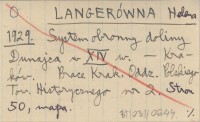 O LANGERÓWNA Helena
1929. System obronny doliny
Dunajca w XIV w. – Kra-
ków. Prace Krak. Oddz. Polskiego
Tow. Historycznego nr 2. Stron
50, mapa.